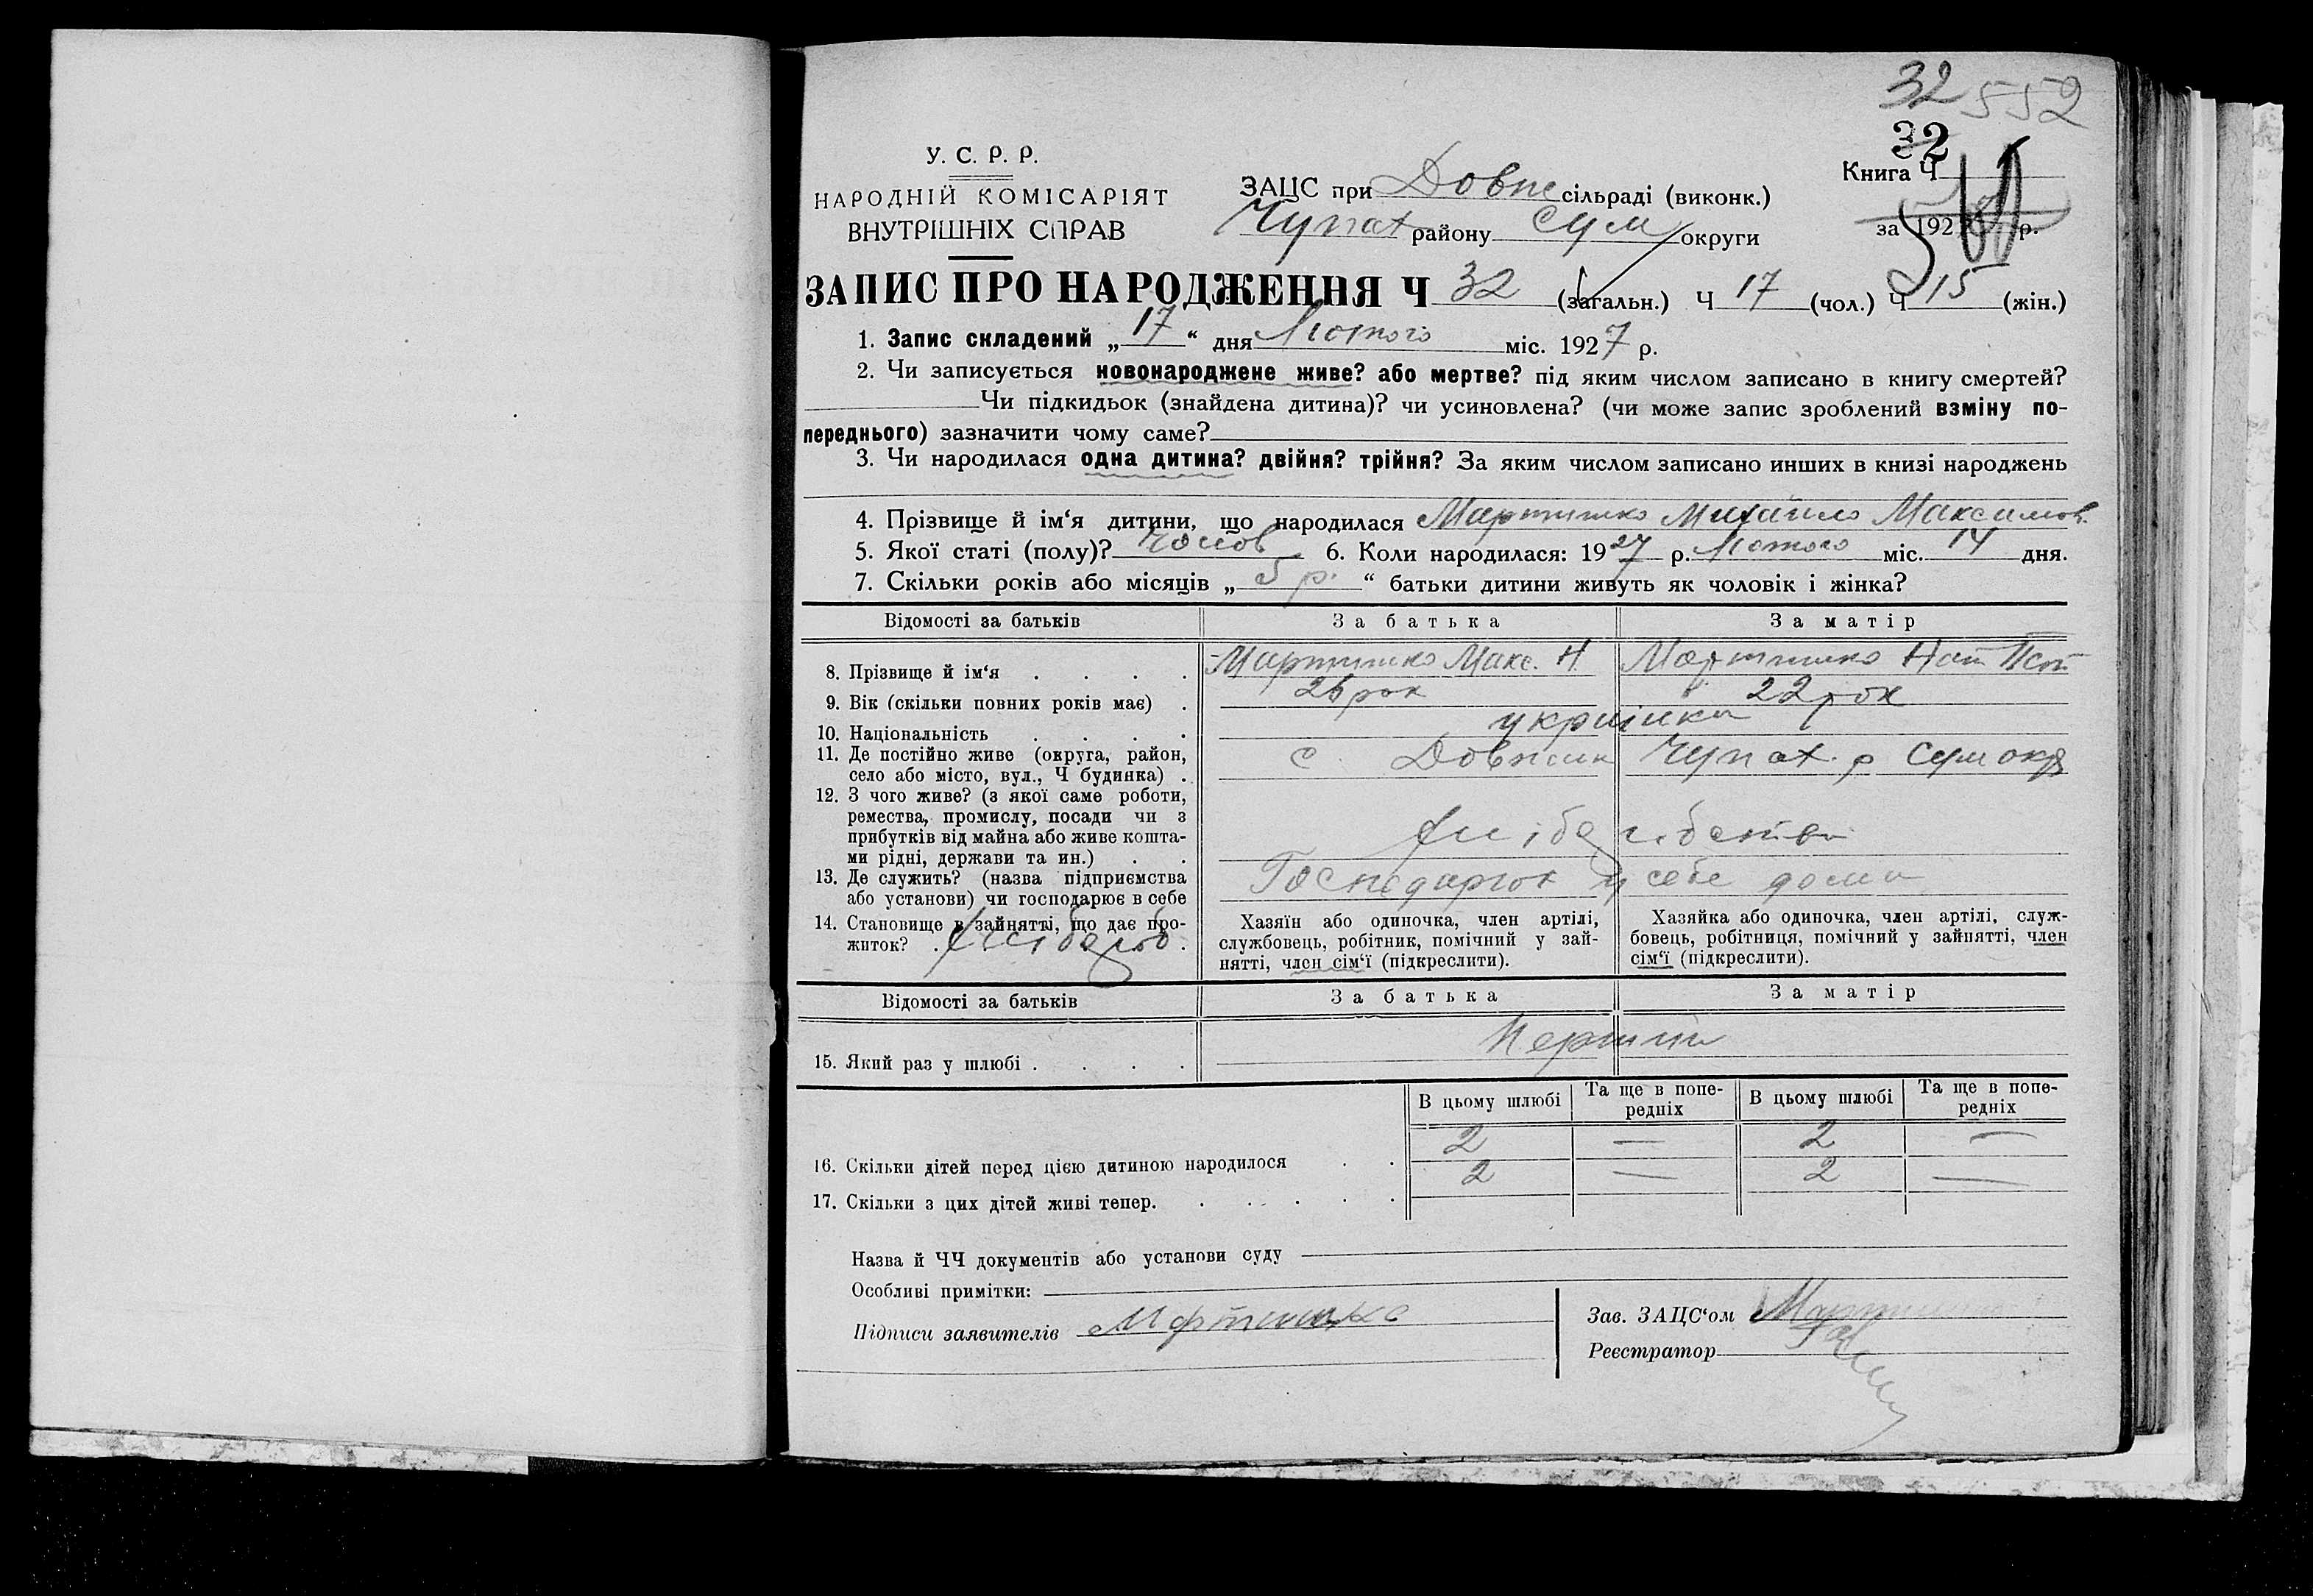 32 552
32
У. С. Р. Р.
НАРОДНІЙ КОМІСАРІЯТ
ВНУТРІШНІХ СПРАВ
ЗАЦС при Довж сільраді (виконк.)
Чупах району Сум округи
Книга Ч
за 192 р.
ЗАПИС ПРО НАРОДЖЕННЯ Ч 32 (загальн.) Ч 17 (чол.) Ч 15 (жін.)
1. Запис складений „ 17 “ дня Лютого міс. 1927 р.
2. Чи записується новонароджене живе? або мертве? під яким числом записано в книгу смертей?
Чи підкидьок (знайдена дитина)? чи усиновлена? (чи може запис зроблений взміну по-
переднього) зазначити чому саме?
3. Чи народилася одна дитина? двійня? трійня? За яким числом записано инших в книзі народжень
4. Прізвище й ім‘я дитини, що народилася Мартишко Михайло Максимов.
5. Якої статі (полу)? Чолов 6. Коли народилася: 1927 р. Лютого міс. 14 дня.
7. Скільки років або місяців „ 5 р. “ батьки дитини живуть як чоловік і жінка?
Відомості за батьків За батька За матір
8. Прізвище й ім‘я . . . . Мартишко Макс. Н. Мартишко Нат
9. Вік (скільки повних років має) . 26 рок 22 рок
10. Національність . . . . українка
11. Де постійно живе (округа, район,
село або місто, вул., Ч будинка) . с. Довжик Чупах. р Сум окр
12. З чого живе? (з якої саме роботи,
ремества, промислу, посади чи з
прибутків від майна або живе кошта-
ми рідні, держави та ин.) . . хлібаробства
13. Де служить? (назва підприємства
або установи) чи господарює в себе Господарює у себе дома
14. Становище в зайнятті, що дає про-
житок? . хлібароб.
Хазяїн або одиночка, член артілі,
службовець, робітник, помічний у зай-
нятті, член сім‘ї (підкреслити).
Хазяйка або одиночка, член артілі, служ-
бовець, робітниця, помічний у зайнятті, член
сім‘ї (підкреслити).
Відомості за батьків За батька За матір
15. Який раз у шлюбі . . . . Перший
В цьому шлюбі Та ще в попе-редніх В цьому шлюбі Та ще в попе-редніх
16. Скільки дітей перед цією дитиною народилося . . 2 — 2 —
17. Скільки з цих дітей живі тепер. . . . . . 2 — 2 —
Назва й ЧЧ документів або установи суду
Особливі примітки:
Підписи заявителів Мартишко
Зав. ЗАЦС‘ом
Реєстратор